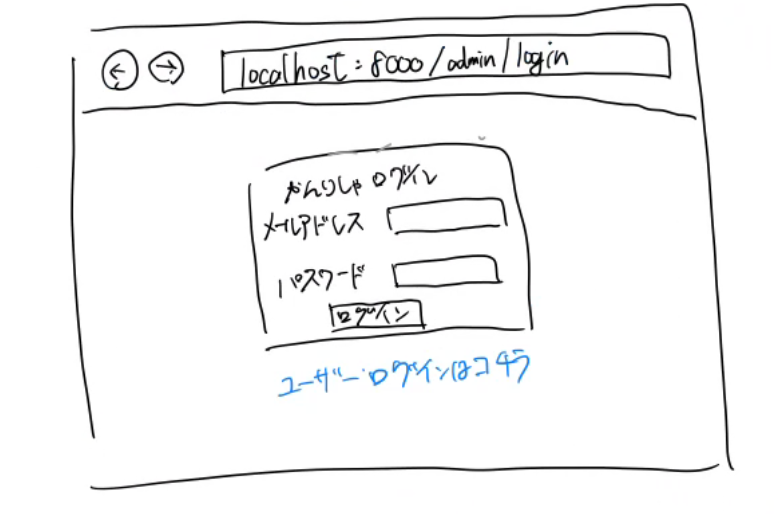 localhost:8000/admin/login
かんりしゃ ログイン
メールアドレス
パスワード
ログイン
ユーザーログインはコチラ